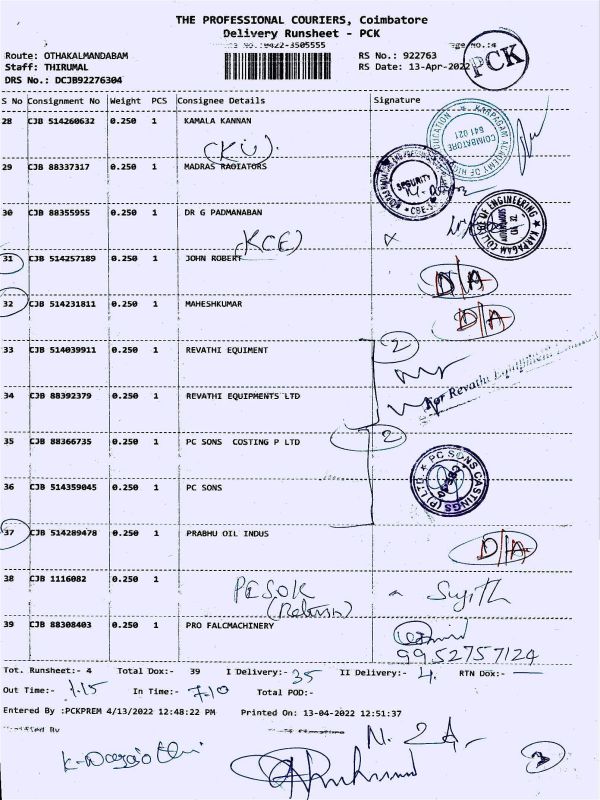 THE PROFESSIONAL COURIERS, Coimbatore
Delivery Runsheet - PCK
0422-3505555
PCK
Route: OTHAKALMANDABAM RS No.: 922763
Staff: THIRUMAL RS Date: 13-Apr-2022
DRS No.: DCJB92276304
S No Consignment No Weight PCS Consignee Details Signature
28 CJB 514260632 0.250 1 KAMALA KANNAN
(KU).
KARPAGAM ACADEMY OF COIMBATORE 641 021
29 CJB 88337317 0.250 1 MADRAS RADIATORS
SECURITY
30 CJB 88355955 0.250 1 DR G PADMANABAN
(KCE)
KARPAGAM COLLEGE OF ENGINEERING
31 CJB 514257189 0.250 1 JOHN ROBERT D/A
32 CJB 514231811 0.250 1 MAHESHKUMAR D/A
33 CJB 514039911 0.250 1 REVATHI EQUIMENT 2
For Revathi Equipment
34 CJB 88392379 0.250 1 REVATHI EQUIPMENTS LTD
35 CJB 88366735 0.250 1 PC SONS COSTING P LTD 2
PC SONS CASTINGS (P) LTD.
36 CJB 514359045 0.250 1 PC SONS
37 CJB 514289478 0.250 1 PRABHU OIL INDUS D/A
38 CJB 1116082 0.250 1 PESOK Sujith
(Return)
39 CJB 88308403 0.250 1 PRO FALCMACHINERY
9952757124
Tot. Runsheet:- 4 Total Dox:- 39 I Delivery:- 35 II Delivery:- 4. RTN Dox:-
Out Time:- 1.15 In Time:- 7.10 Total POD:-
Entered By :PCKPREM 4/13/2022 12:48:22 PM Printed On: 13-04-2022 12:51:37
N. 2A.
3